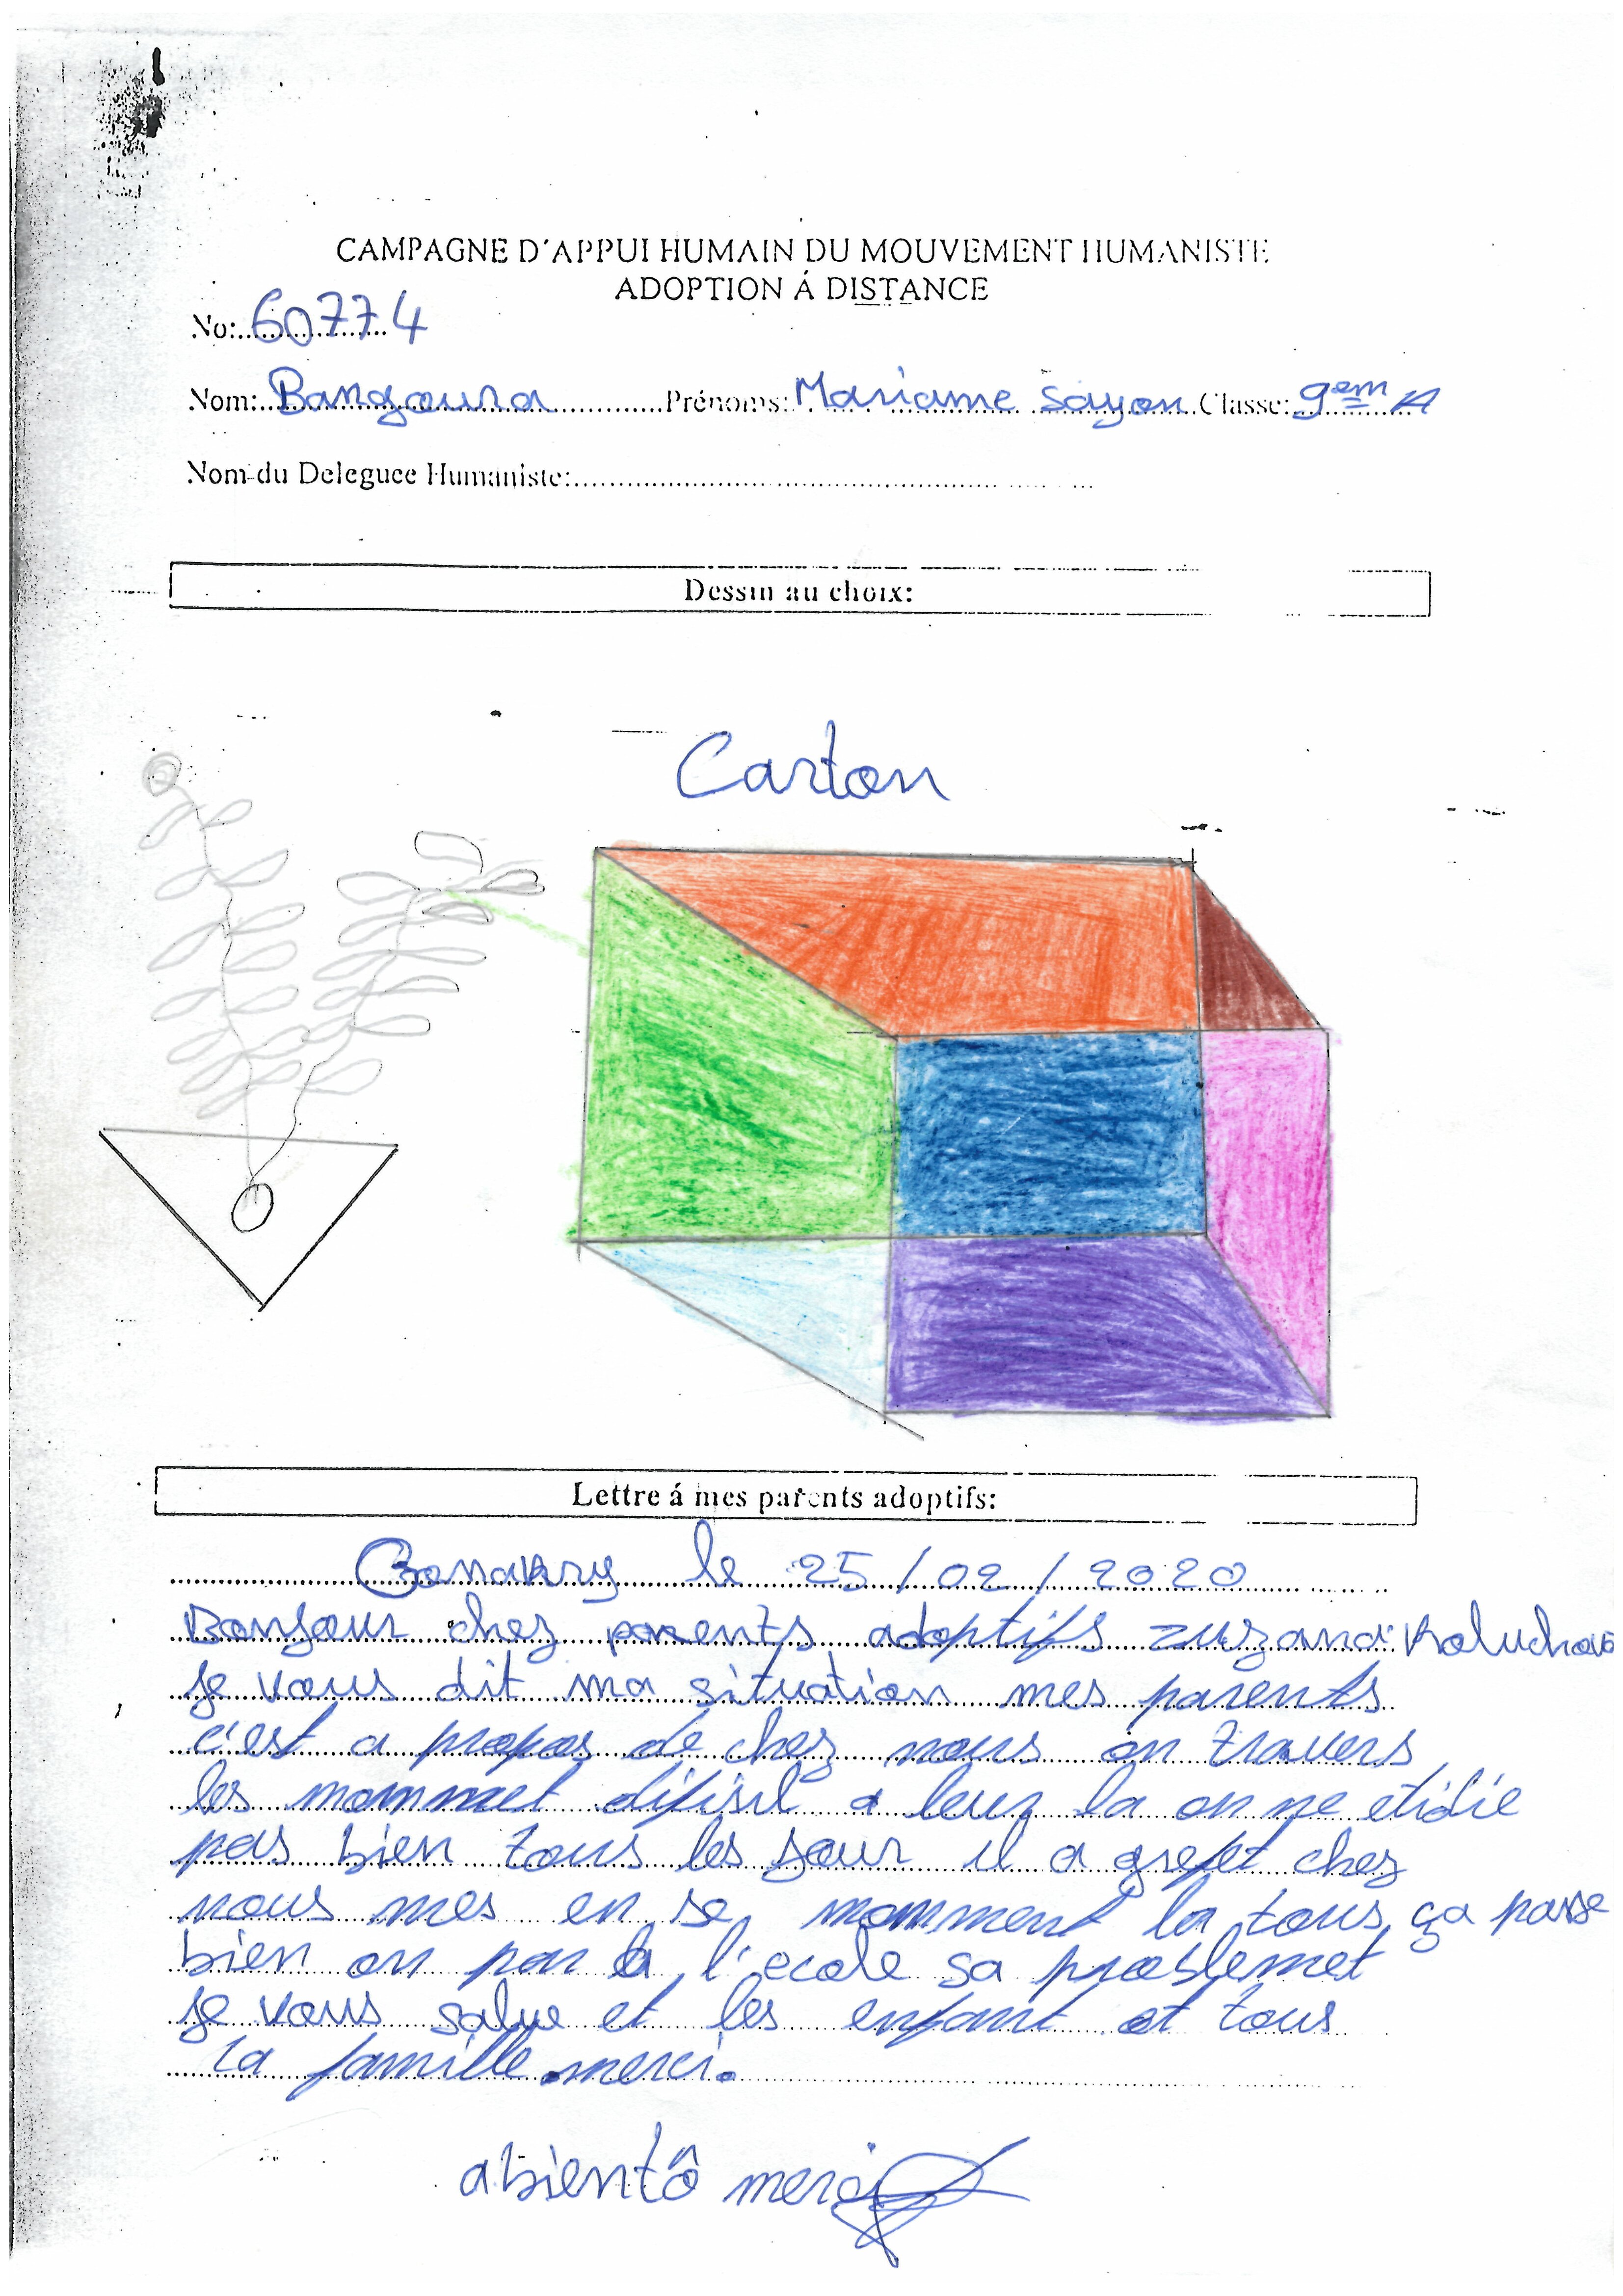 CAMPAGNE D'APPUI HUMAIN DU MOUVEMENT HUMANISTE
ADOPTION Á DISTANCE
No: 60774
Nom: Bangoura Prénoms: Mariame Sayon Classe: 9em A
Nom du Deleguee Humaniste:
Dessin au choix:
Carton
Lettre á mes parents adoptifs:
Conakry le 25/02/2020
Bonjour cher parents adoptifs zuzana
je vous dit ma situation mes parents
c'est a propos de chez nous on travers
les mommet difisil a leur la on ne etidie
pas bien tous les jour il a greft chez
nous mes en se momment la tous ça passe
bien on par à l'ecole sa problemet
je vous salue et les enfant et tous
la famille merci.
abientô merci